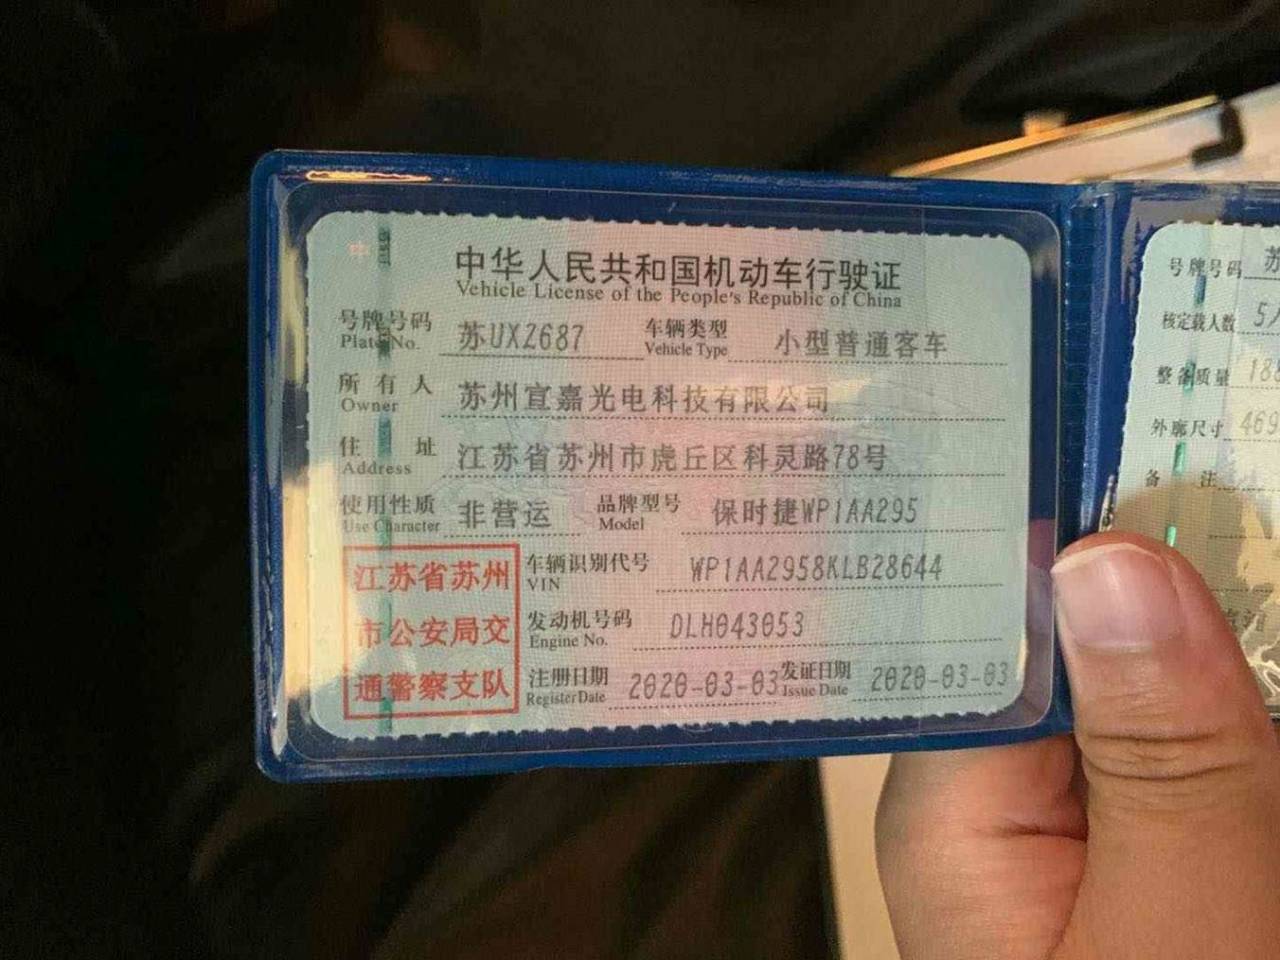 中华人民共和国机动车行驶证
Vehicle License of the People's Republic of China
号牌号码 苏UXZ687 车辆类型 小型普通客车
Plate No. Vehicle Type
所有人 苏州宣嘉光电科技有限公司
Owner
住址 江苏省苏州市虎丘区科灵路78号
Address
使用性质 非营运 品牌型号 保时捷WP1AA295
Use Character Model
车辆识别代号 WP1AA2958KLB28644
VIN
发动机号码 DLH043053
Engine No.
注册日期 2020-03-03 发证日期 2020-03-03
Register Date Issue Date
江苏省苏州
市公安局交
通警察支队
号牌号码 苏
核定载人数 5
整备质量 18
外廓尺寸 469
备注